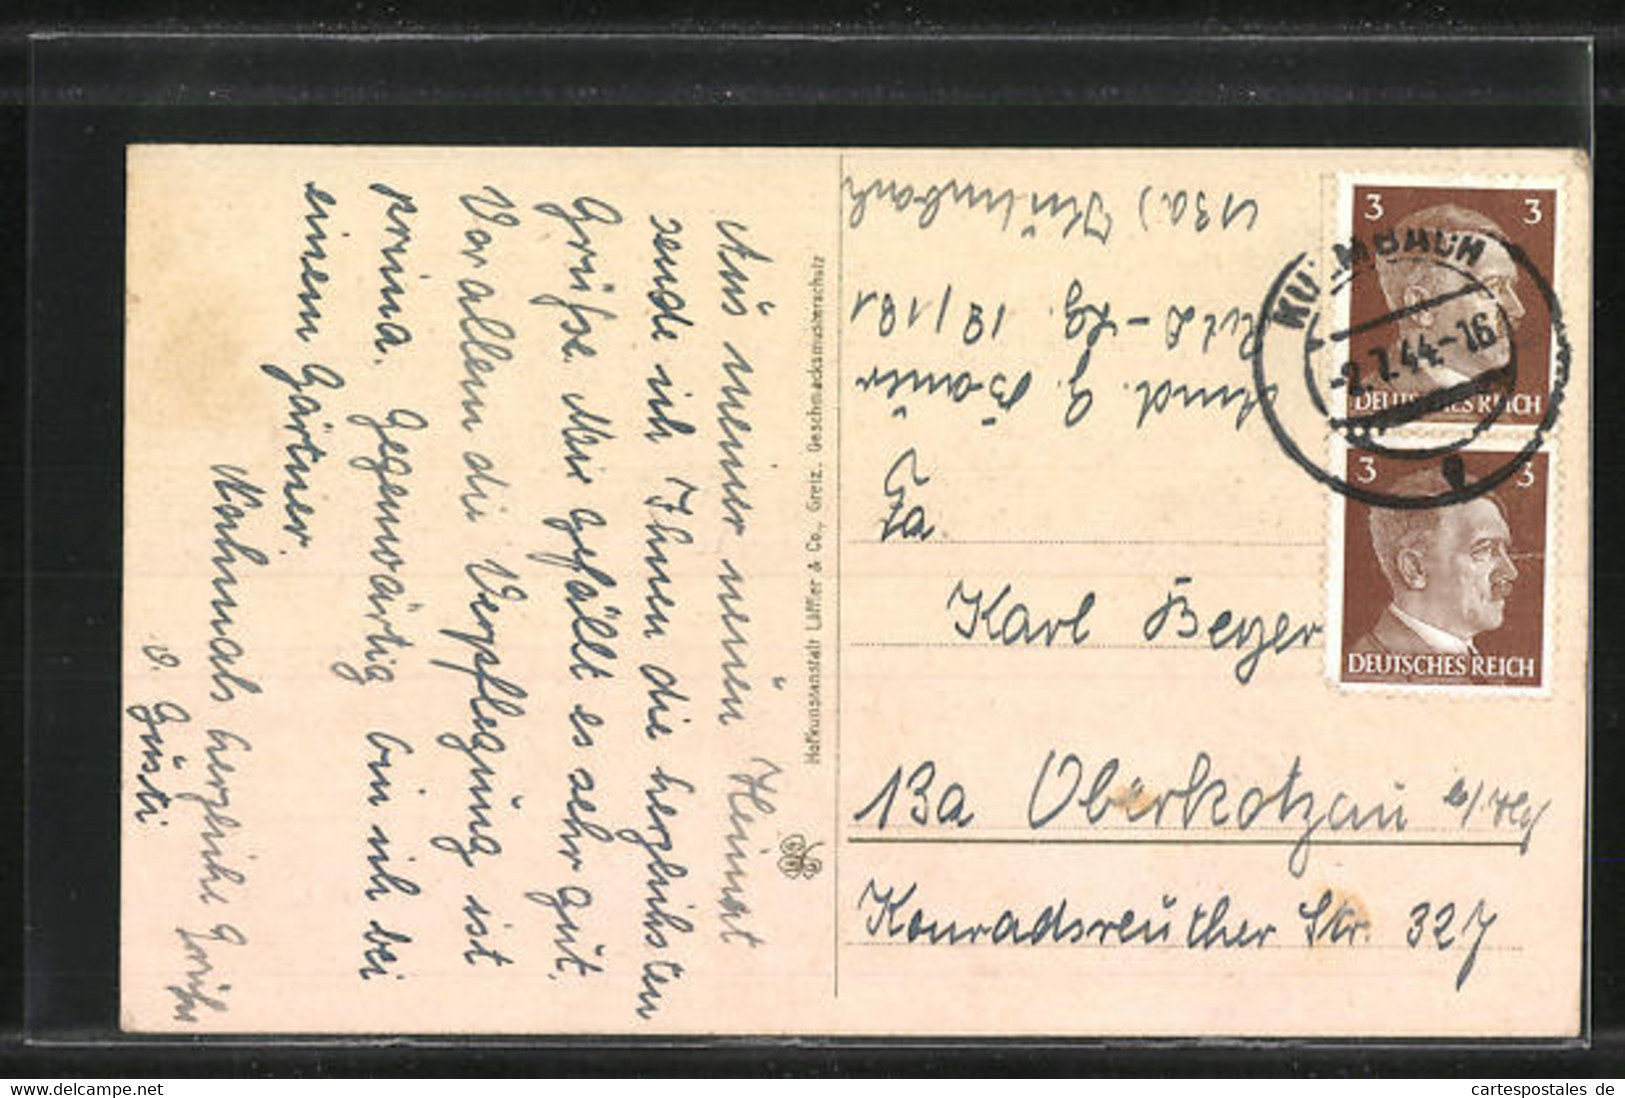 Aus meiner neuen Heimat
sende ich Ihnen die herzlichsten
Grüße. Mir gefällt es sehr gut.
Vor allem die Verpflegung ist
prima. Gegenwärtig bin ich bei
einem Gärtner.
Nochmals herzliche Grüße
G. Bauer
RAD-Lg. 18/181
(13a) Kulmbach
Karl Beyer
13a Oberkotzau
Konradsreuther Str. 327
Hofkunstanstalt Löffler & Co., Greiz. Geschmacksmusterschutz
3 3
DEUTSCHES REICH
3 3
DEUTSCHES REICH
KULMBACH
-2.7.44.-16
www.delcampe.net
cartespostales de